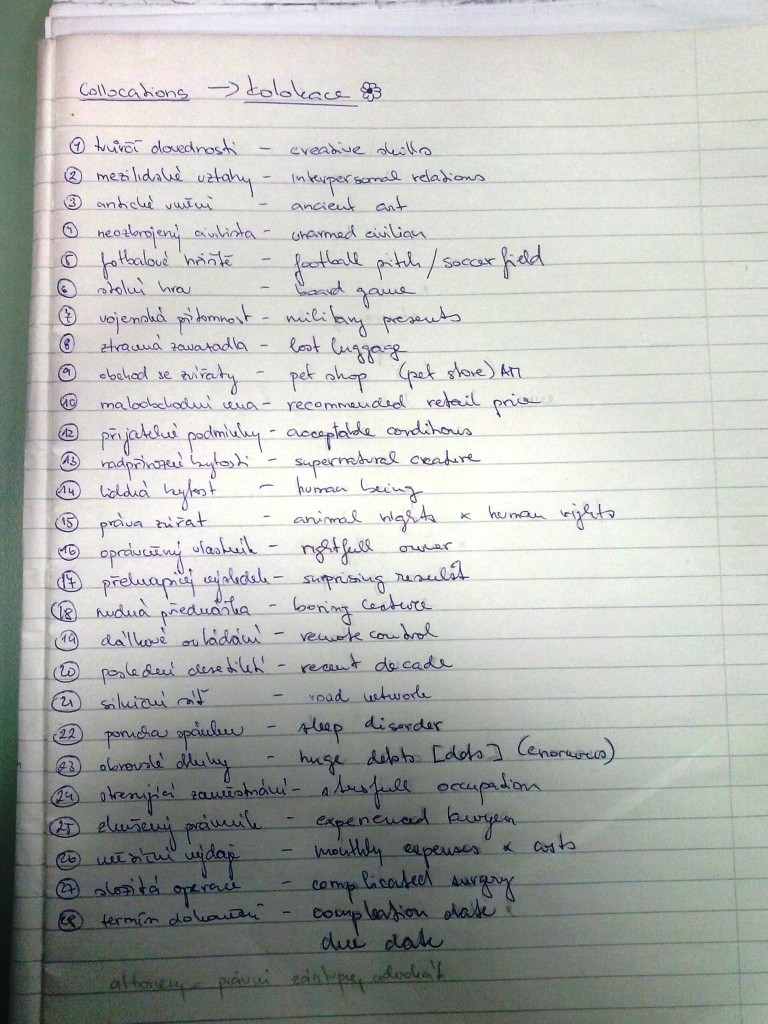 Collocations → kolokace
1 tvůrčí dovednosti - creative skills
2 mezilidské vztahy - interpersonal relations
3 antické umění - ancient art
4 neozbrojený civilista - unarmed civilian
5 fotbalové hřiště - football pitch / soccer field
6 stolní hra - board game
7 vojenská přítomnost - military presents
8 ztracená zavazadla - lost luggage
9 obchod se zvířaty - pet shop (pet store) AM
10 maloobchodní cena - recommended retail price
12 přijatelné podmínky - acceptable conditions
13 nadpřirozené bytosti - supernatural creature
14 lidská bytost - human being
15 práva zvířat - animal rights × human rights
16 oprávněný vlastník - rightfull owner
17 překvapující výsledek - surprising result
18 nudná přednáška - boring lecture
19 dálkové ovládání - remote control
20 poslední desetiletí - recent decade
21 silniční síť - road network
22 porucha spánku - sleep disorder
23 obrovské dluhy - huge debts [dets] (enormous)
24 stresující zaměstnání - stresfull occupation
25 zkušený právník - experienced lawyer
26 měsíční výdaje - monthly expenses × costs
27 složitá operace - complicated surgery
28 termín dokončení - compleation date
due date
attorney - právní zástupce, advokát